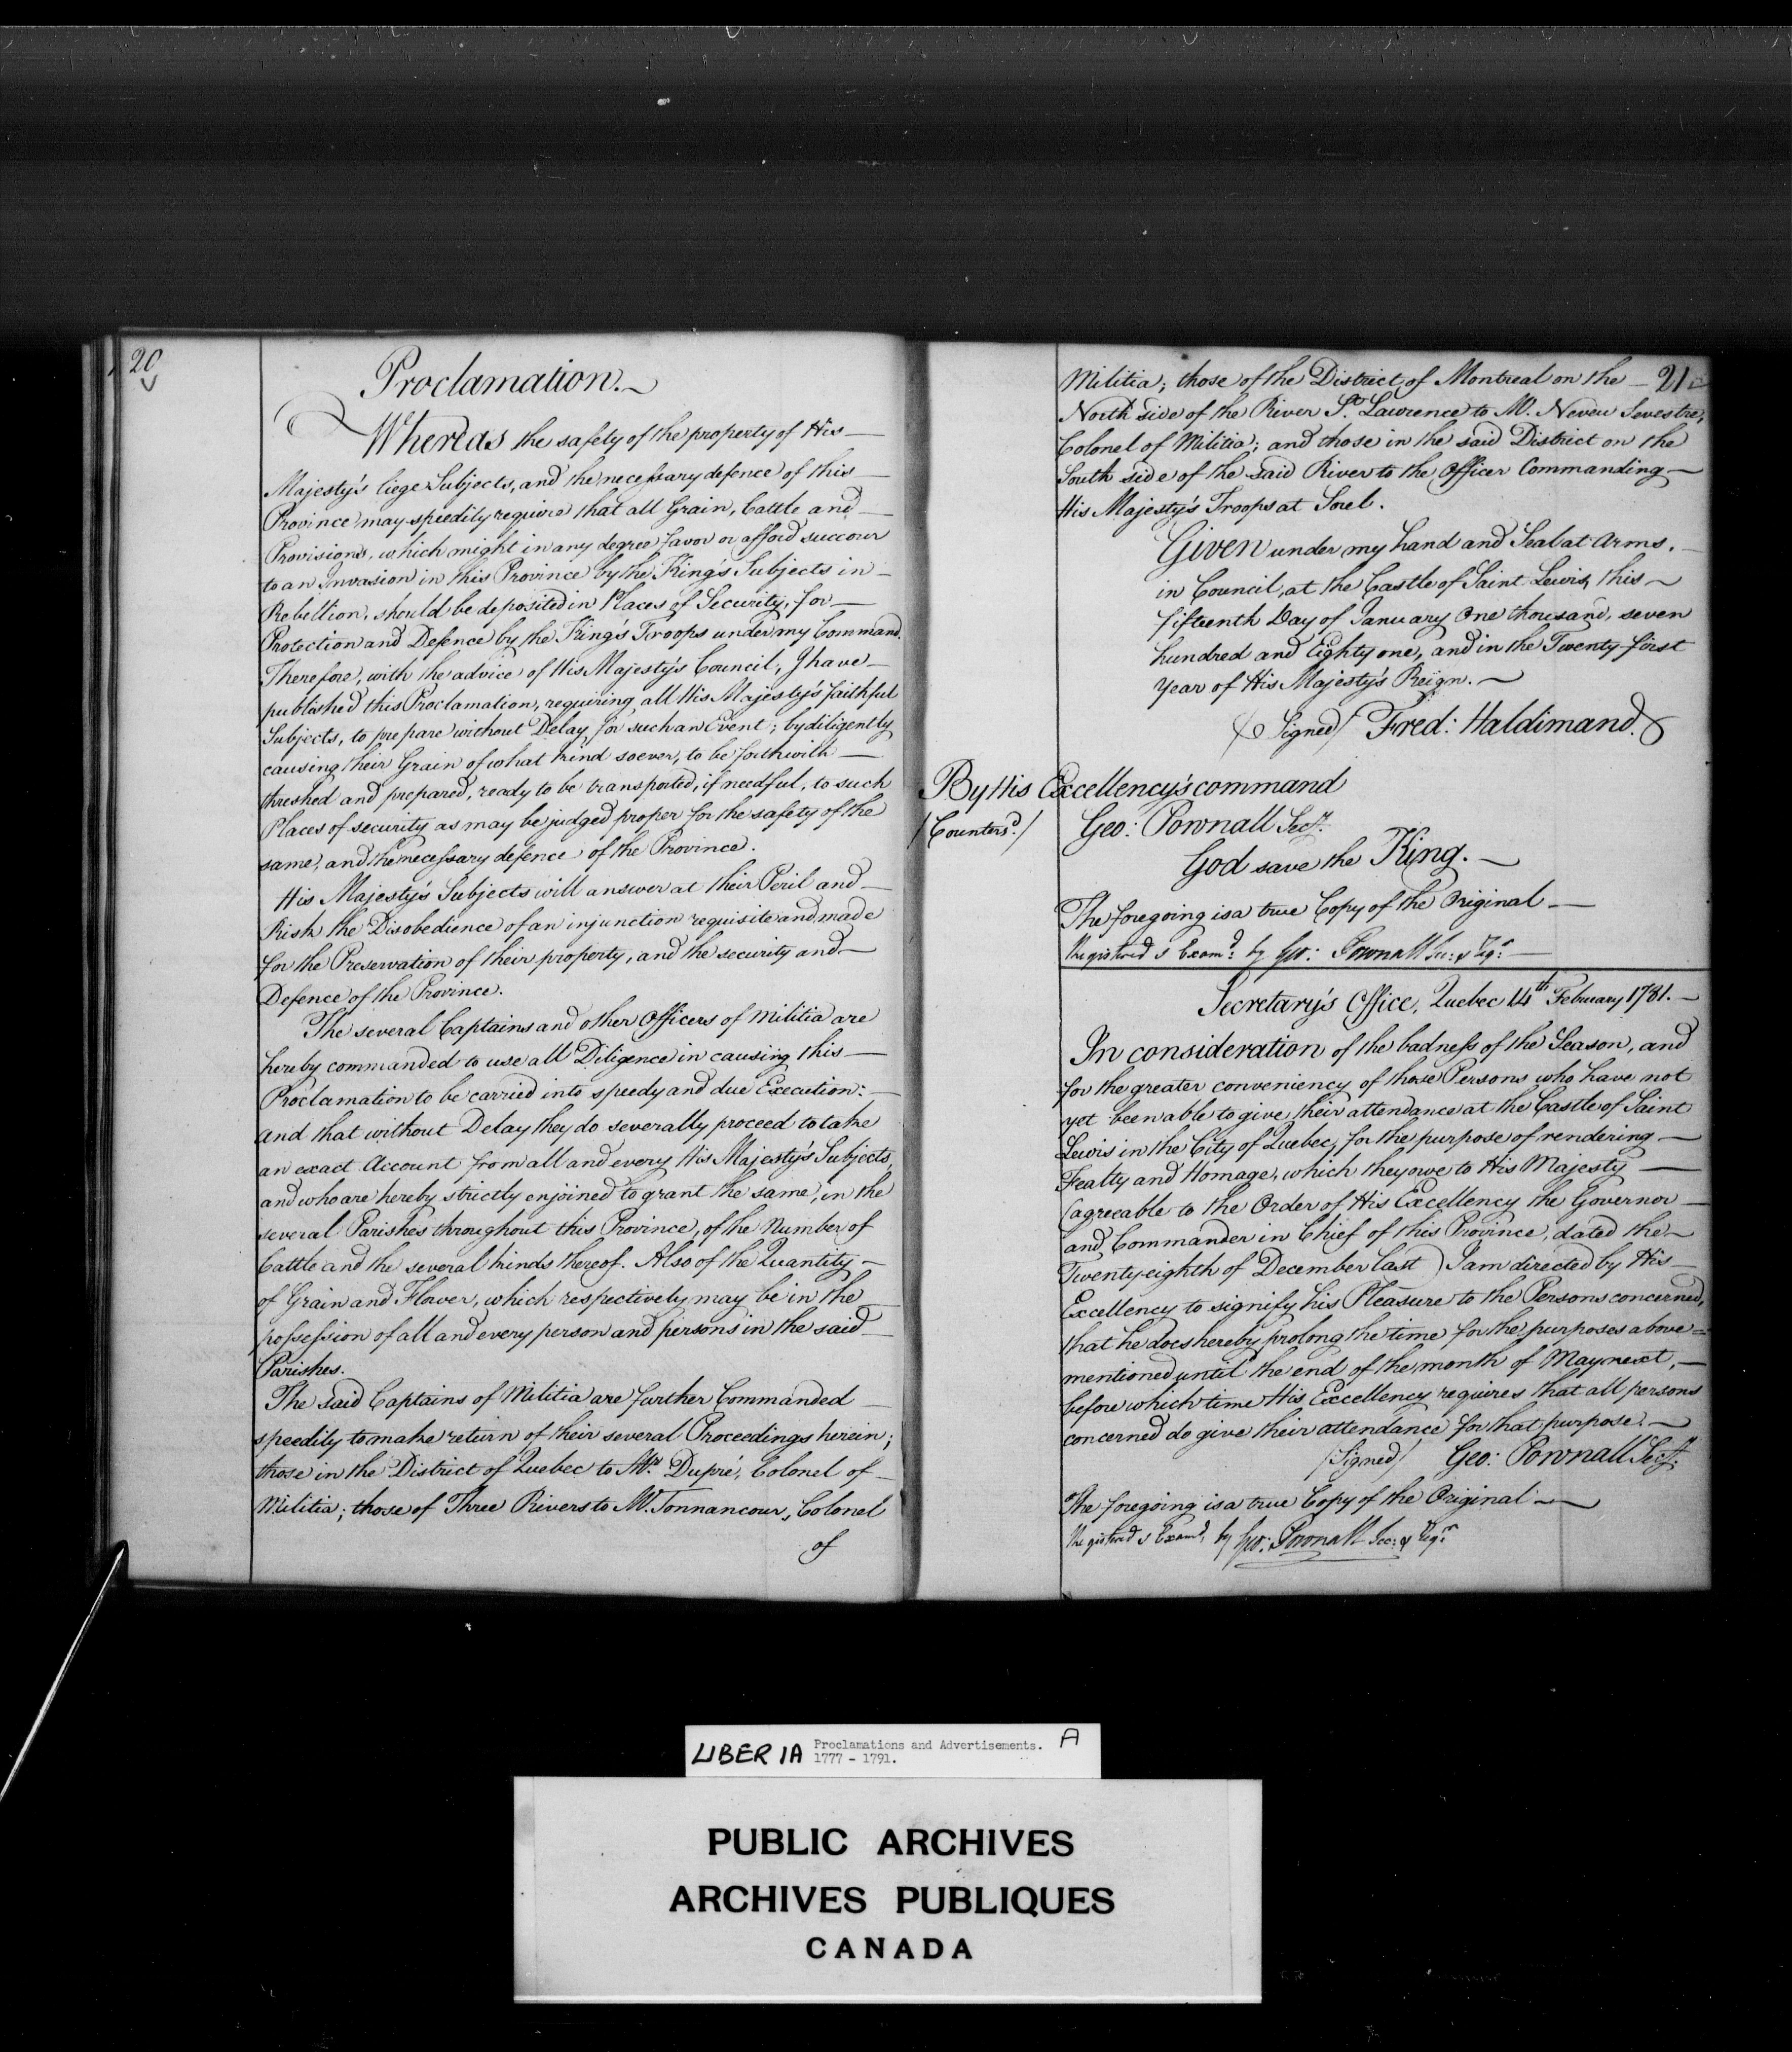 20
Proclamation.
Whereas the safety of the property of His
Majesty's liege Subjects, and the necessary defence of this
Province may speedily require that all Grain, Cattle and
Provisions, which might in any degree favor or afford succour
to an Invasion in this Province by the King's Subjects in
Rebellion, should be deposited in Places of Security, for
Protection and Defence by the King's Troops under my Command.
Therefore, with the advice of His Majesty's Council, I have
published this Proclamation, requiring all His Majesty's faithful
Subjects, to prepare without Delay for such an Event; by diligently
causing their Grain of what kind soever, to be forthwith
threshed and prepared, ready to be transported, if needful, to such
Places of security as may be judged proper for the safety of the
same, and the necessary defence of the Province.
His Majesty's Subjects will answer at their Peril and
Risk the Disobedience of an injunction requisite and made
for the Preservation of their property, and the security and
Defence of the Province.
The several Captains and other Officers of Militia are
hereby commanded to use all Diligence in causing this
Proclamation to be carried into speedy and due Execution:
and that without Delay they do severally proceed to take
an exact Account from all and every His Majesty's Subjects,
and who are hereby strictly enjoined to grant the same, in the
several Parishes throughout this Province, of the Number of
Cattle and the several kinds thereof. Also of the Quantity
of Grain and Flower, which respectively may be in the
possession of all and every person and persons in the said
Parishes.
The said Captains of Militia are further Commanded
speedily to make return of their several Proceedings herein;
those in the District of Quebec to Mr. Dupré, Colonel of
Militia; those of Three Rivers to Mr. Tonnancour, Colonel
of
Militia; those of the District of Montreal on the 21
North side of the River St. Lawrence to M. Neveu Sevestre,
Colonel of Militia; and those in the said District on the
South side of the said River to the Officer Commanding
His Majesty's Troops at Sorel.
Given under my hand and Seal at Arms.
in Council, at the Castle of Saint Lewis, this
fifteenth Day of January One thousand, seven
hundred and Eighty one, and in the Twenty-first
Year of His Majesty's Reign.
(Signed) Fred: Haldimand.
By His Excellency's command
(Counters'd.) Geo: Pownall Secy.
God save the King.
The foregoing is a true Copy of the Original
Registered & Exam'd: by Geo: Pownall Sec: & Regr.
Secretary's Office, Quebec 14th February 1781.
In consideration of the badness of the Season, and
for the greater conveniency of those Persons who have not
yet been able to give their attendance at the Castle of Saint
Lewis in the City of Quebec, for the purpose of rendering
Fealty and Homage, which they owe to His Majesty
(agreeable to the Order of His Excellency the Governor
and Commander in Chief of this Province, dated the
Twenty-eighth of December last) I am directed by His
Excellency to signify his Pleasure to the Persons concerned,
that he does hereby prolong the time for the purposes above=
mentioned until the end of the month of May next,
before which time His Excellency requires that all persons
concerned do give their attendance for that purpose.
(Signed) Geo: Pownall Secy.
The foregoing is a true Copy of the Original
Registered & Exam'd. by Geo: Pownall Sec: & Regr.
LIBER IA Proclamations and Advertisements. A
1777 - 1791.
PUBLIC ARCHIVES
ARCHIVES PUBLIQUES
CANADA